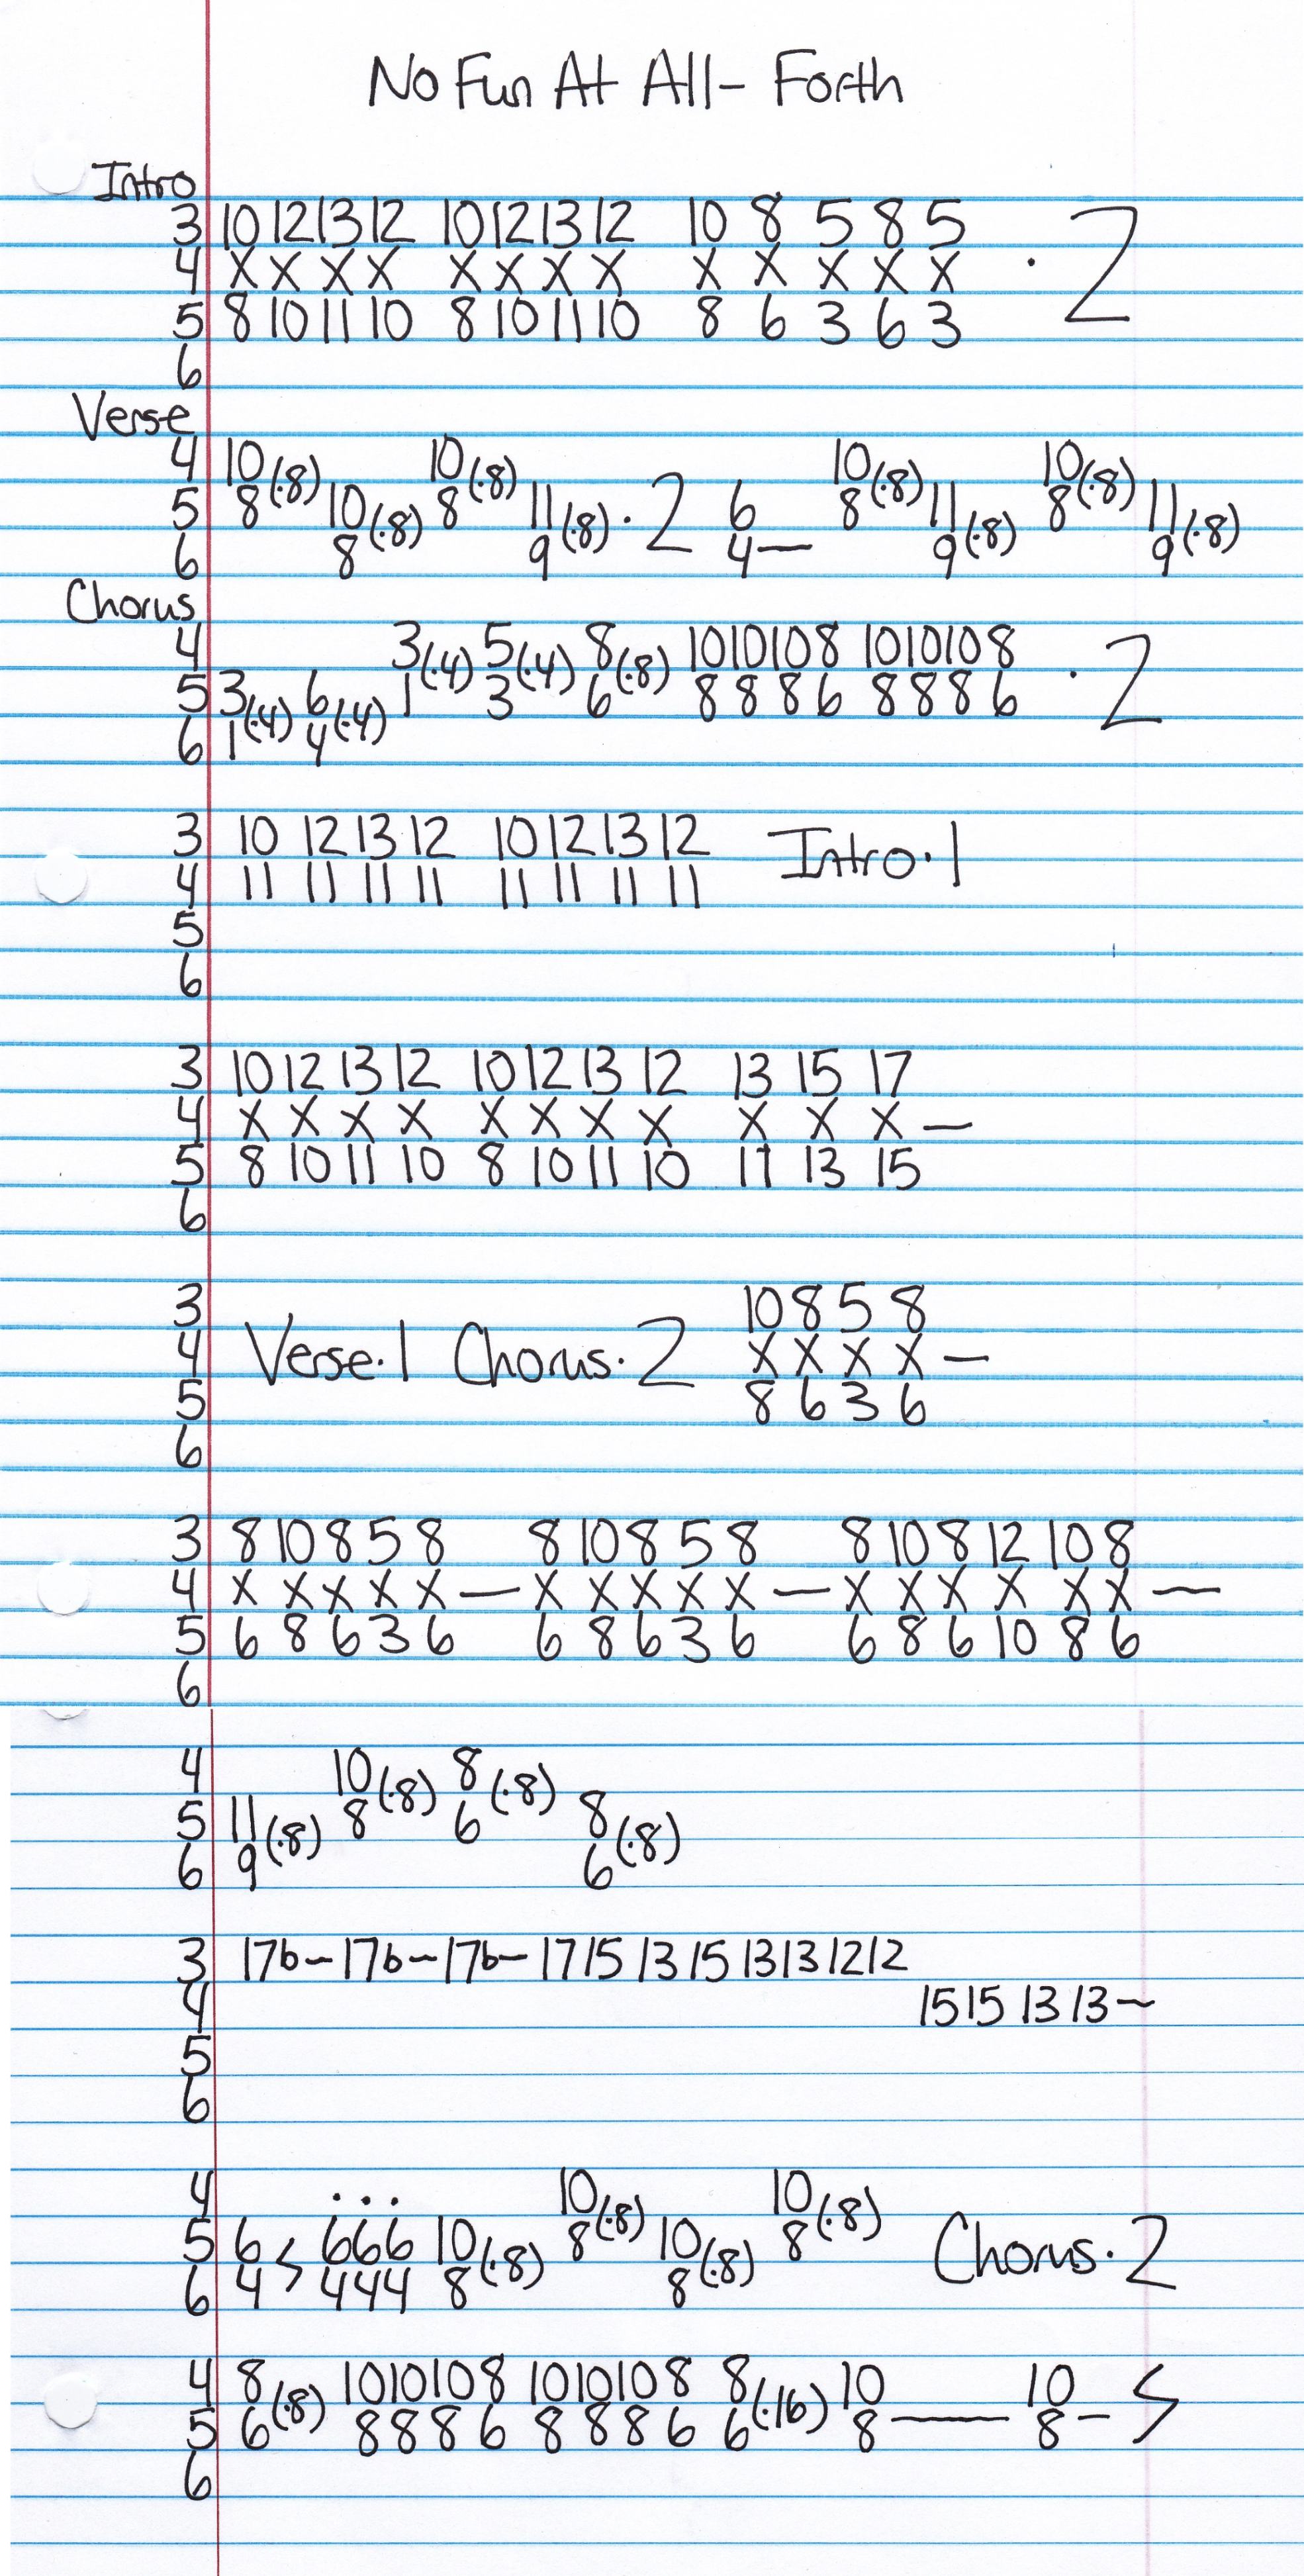 No Fun At All - Forth
Intro
3 10 12 13 12 10 12 13 12 10 8 5 8 5
4 X X X X X X X X X X X X X · 2
5 8 10 11 10 8 10 11 10 8 6 3 6 3
6
Verse
4 10 (·8) 10 (·8) 10 (·8) 10 (·8)
5 8 10 (·8) 8 11 (·8) · 2 6 8 11 (·8) 8 11 (·8)
6 8 9 4 — 9 9
Chorus
4 3 (·4) 5 (·4) 8 (·8) 10 10 10 8 10 10 10 8
5 3 (·4) 6 (·4) 1 3 6 8 8 8 6 8 8 8 6 · 2
6 1 4
3 10 12 13 12 10 12 13 12 Intro · 1
4 11 11 11 11 11 11 11 11
5
6
3 10 12 13 12 10 12 13 12 13 15 17
4 X X X X X X X X X X X —
5 8 10 11 10 8 10 11 10 11 13 15
6
3 10 8 5 8
4 Verse · 1 Chorus · 2 X X X X —
5 8 6 3 6
6
3 8 10 8 5 8 8 10 8 5 8 8 10 8 12 10 8
4 X X X X X — X X X X X — X X X X X X —
5 6 8 6 3 6 6 8 6 3 6 6 8 6 10 8 6
6
4 10 (·8) 8 (·8)
5 11 (·8) 8 6 8 (·8)
6 9 6
3 17b - 17b - 17b - 17 15 13 15 13 13 12 12
4 15 15 13 13 ~
5
6
4 . . . 10 (·8) 10 (·8)
5 6 6 6 6 10 (·8) 8 10 (·8) 8 Chorus · 2
6 4 4 4 4 8 8
4 8 (·8) 10 10 10 8 10 10 10 8 8 (·16) 10 10
5 6 8 8 8 6 8 8 8 6 6 8 — 8 —
6